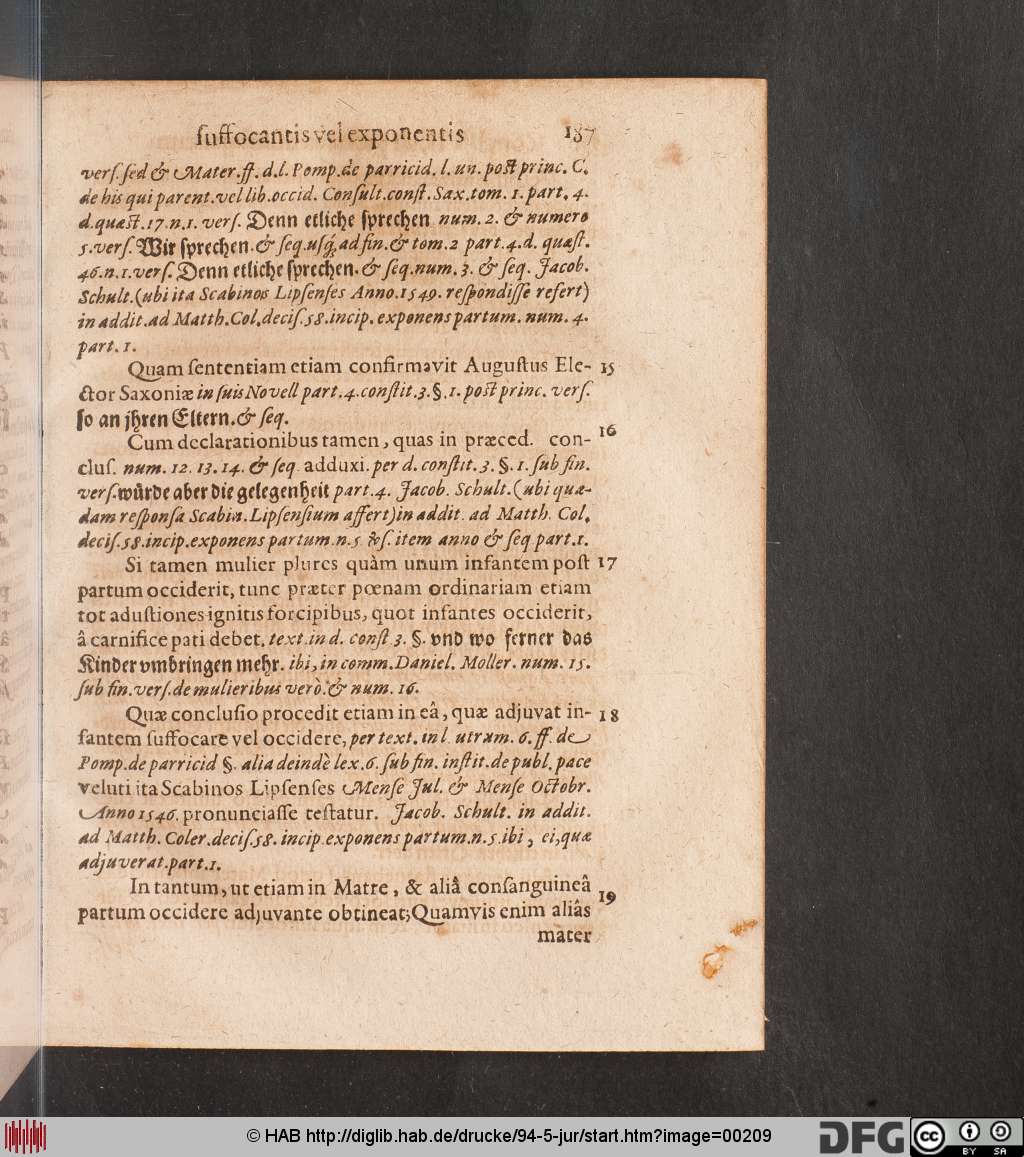 ſuffocantis vel exponentis 187
verſ. ſed & Mater. ff. d. l. Pomp. de parricid. l. un. poſt princ. C.
de his qui parent. vel lib. occid. Conſult. conſt. Sax. tom. 1. part. 4.
d. quæſt. 17. n. 1. verſ. Denn etliche ſprechen num. 2. & numero
5. verſ. Wir ſprechen. & ſeq. uſq́; ad fin. & tom. 2 part. 4. d. quæſt.
46. n. 1. verſ. Denn etliche ſprechen. & ſeq. num. 3. & ſeq. Jacob.
Schult. (ubi ita Scabinos Lipſenſes Anno. 1549. reſpondiſſe refert)
in addit. ad Matth. Col. deciſ. 58. incip. exponens partum. num. 4.
part. 1.
Quam ſententiam etiam confirmavit Auguſtus Ele- 15
ctor Saxoniæ in ſuis Novell part. 4. conſtit. 3. §. 1. poſt princ. verſ.
ſo an jhren Eltern. & ſeq.
Cum declarationibus tamen, quas in præced. con- 16
cluſ. num. 12. 13. 14. & ſeq adduxi. per d. conſtit. 3. §. 1. ſub fin.
verſ. wůrde aber die gelegenheit part. 4. Jacob. Schult. (ubi quæ-
dam reſponſa Scabin. Lipſenſium affert) in addit. ad Matth. Col.
deciſ. 58. incip. exponens partum. n. 5 &ſ. item anno & ſeq part. 1.
Si tamen mulier plures quàm unum infantem poſt 17
partum occiderit, tunc præter pœnam ordinariam etiam
tot aduſtiones ignitis forcipibus, quot infantes occiderit,
â carnifice pati debet. text. in d. conſt 3. §. vnd wo ferner das
Kinder vmbringen mehr. ibi, in comm. Daniel. Moller. num. 15.
ſub fin. verſ. de mulieribus verò. & num. 16.
Quæ concluſio procedit etiam in eâ, quæ adjuvat in- 18
fantem ſuffocare vel occidere, per text. in l. utrum. 6. ff. de
Pomp. de parricid §. alia deindè lex. 6. ſub fin. inſtit. de publ. pace
veluti ita Scabinos Lipſenſes Menſe Jul. & Menſe Octobr.
Anno 1546. pronunciaſſe teſtatur. Jacob. Schult. in addit.
ad Matth. Coler. deciſ. 58. incip. exponens partum. n. 5. ibi, ei, quæ
adjuverat. part. 1.
In tantum, ut etiam in Matre, & aliâ conſanguineâ 19
partum occidere adjuvante obtineat; Quamvis enim aliâs
mater
© HAB http://diglib.hab.de/drucke/94-5-jur/start.htm?image=00209
DFG cc BY SA